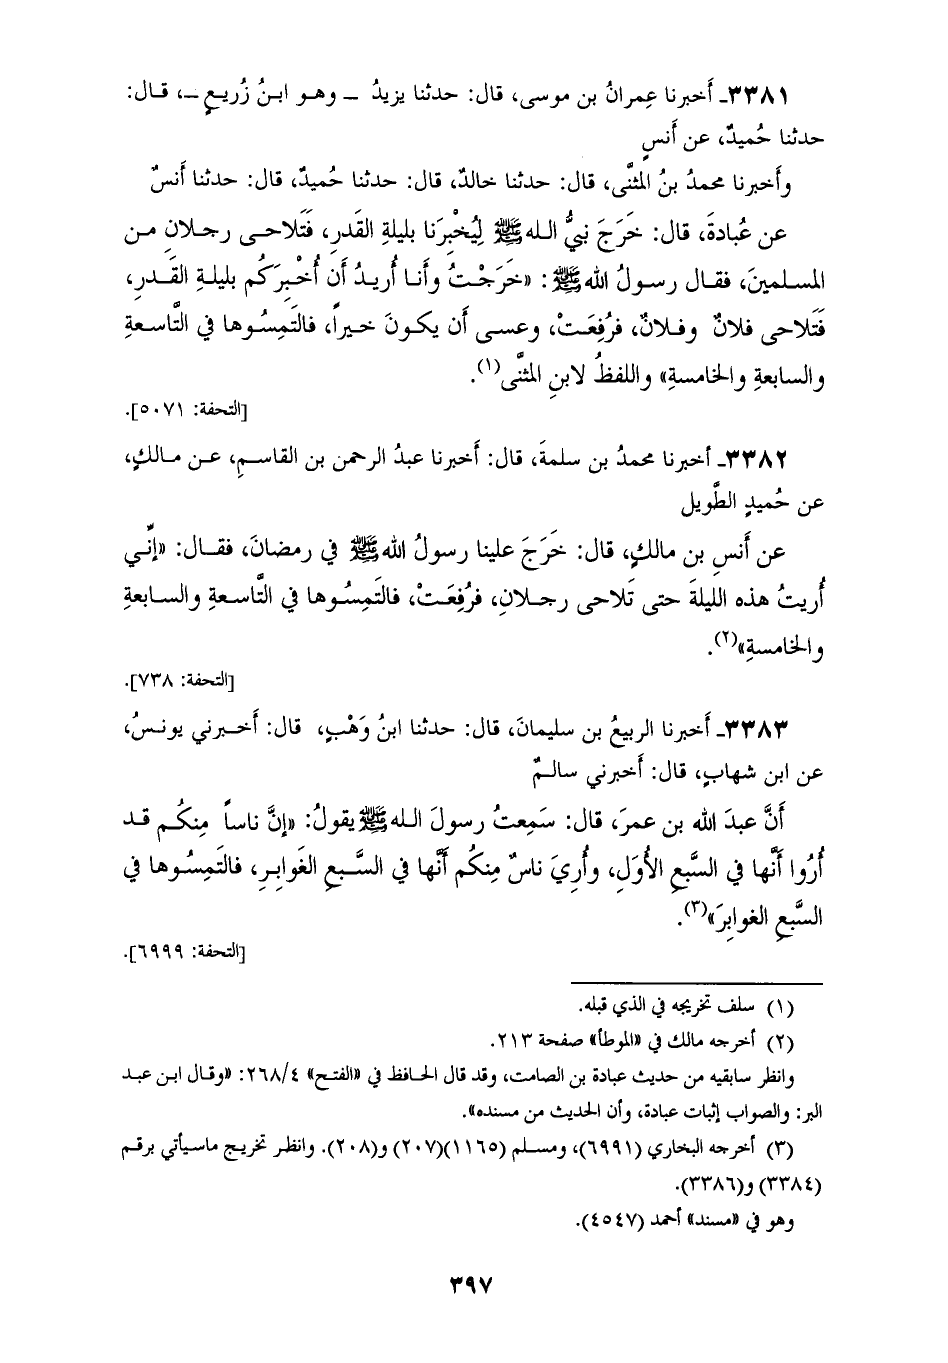 ٣٣٨١ـ أَخبرنا عِمرانُ بن موسى، قال: حدثنا يزيدُ ــ وهـو ابـنُ زُريـعٍ ــ، قـال:
حدثنا حُميدٌ، عن أَنسٍ
وأَخبرنا محمدُ بنُ المثنَّى، قال: حدثنا خالدٌ، قال: حدثنا حُميدٌ، قال: حدثنا أَنسٌ
عن عُبادةَ، قال: خَرَجَ نبيُّ اللـه ﷺ لِيُخْبِرَنا بليلةِ القَدرِ، فَتَلاحـى رجـلانِ مـن
المسلمينَ، فقـال رسـولُ الله ﷺ: «خَرَجْـتُ وأَنـا أُريـدُ أَن أُخْـبِرَكُم بليلـةِ القَـدرِ،
فَتَلاحى فلانٌ وفـلانٌ، فرُفِعَـتْ، وعسـى أَن يكـونَ خـيراً، فالتَمِسُـوها في التَّاسـعةِ
والسابعةِ والخامسةِ» واللفظُ لابنِ المثنَّى(١).
[التحفة: ٥٠٧١].
٣٣٨٢ـ أَخبرنا محمدُ بن سلمةَ، قال: أَخبرنا عبدُ الرحمن بن القاسـمِ، عـن مـالكٍ،
عن حُميدٍ الطَّويل
عن أَنسِ بن مالكٍ، قال: خَرَجَ علينا رسولُ الله ﷺ في رمضانَ، فقـال: «إنِّـي
أُريتُ هذه الليلةَ حتى تَلاحى رجـلانِ، فرُفِعَـتْ، فالتَمِسُـوها في التَّاسـعةِ والسـابعةِ
والخامسةِ»(٢).
[التحفة: ٧٣٨].
٣٣٨٣ـ أَخبرنا الربيعُ بن سليمانَ، قال: حدثنا ابنُ وَهْبٍ، قال: أَخـبرني يونـسُ،
عن ابن شهابٍ، قال: أَخبرني سالمٌ
أَنَّ عبدَ الله بن عمرَ، قال: سَمِعتُ رسولَ اللـه ﷺ يقولُ: «إنَّ ناساً مِنكُـم قـد
أُرُوا أَنَّها في السَّبعِ الأُوَلِ، وأُرِيَ ناسٌ مِنكُم أَنَّها في السَّـبعِ الغَوابِـرِ، فالتَمِسُـوها في
السَّبعِ الغوابِرَ»(٣).
[التحفة: ٦٩٩٩].
(١) سلف تخريجه في الذي قبله.
(٢) أخرجه مالك في «الموطأ» صفحة ٢١٣.
وانظر سابقيه من حديث عبادة بن الصامت، وقد قال الحافظ في «الفتح» ٢٦٨/٤: «وقـال ابـن عبـد
البر: والصواب إثبات عبادة، وأن الحديث من مسنده».
(٣) أخرجه البخاري (٦٩٩١)، ومسـلم (١١٦٥)(٢٠٧) و(٢٠٨). وانظـر تخريـج ماسـيأتي برقـم
(٣٣٨٤) و(٣٣٨٦).
وهو في «مسند» أحمد (٤٥٤٧).
٣٩٧